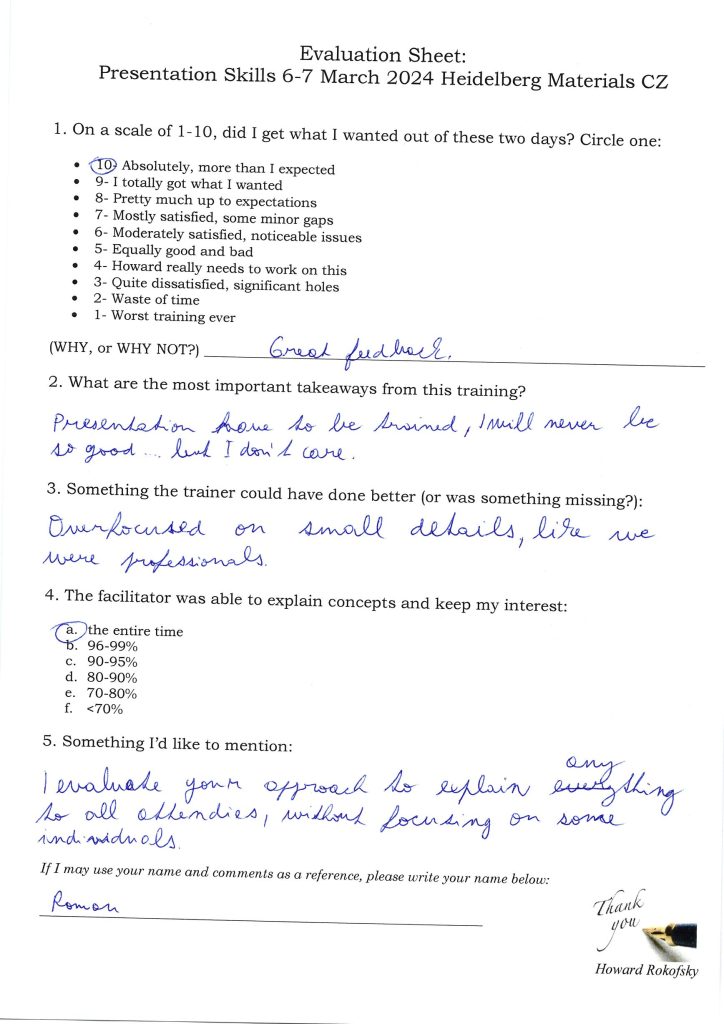 Evaluation Sheet:
Presentation Skills 6-7 March 2024 Heidelberg Materials CZ
1. On a scale of 1-10, did I get what I wanted out of these two days? Circle one:
• 10- Absolutely, more than I expected
• 9- I totally got what I wanted
• 8- Pretty much up to expectations
• 7- Mostly satisfied, some minor gaps
• 6- Moderately satisfied, noticeable issues
• 5- Equally good and bad
• 4- Howard really needs to work on this
• 3- Quite dissatisfied, significant holes
• 2- Waste of time
• 1- Worst training ever
(WHY, or WHY NOT?) Great feedback.
2. What are the most important takeaways from this training?
Presentation have to be trained, I will never be
so good ... but I don't care.
3. Something the trainer could have done better (or was something missing?):
Overfocused on small details, like we
were professionals.
4. The facilitator was able to explain concepts and keep my interest:
a. the entire time
b. 96-99%
c. 90-95%
d. 80-90%
e. 70-80%
f. <70%
5. Something I'd like to mention:
any
I evaluate your approach to explain everything
to all attendies, without focusing on some
individuals.
If I may use your name and comments as a reference, please write your name below:
Roman
Thank
you
Howard Rokofsky